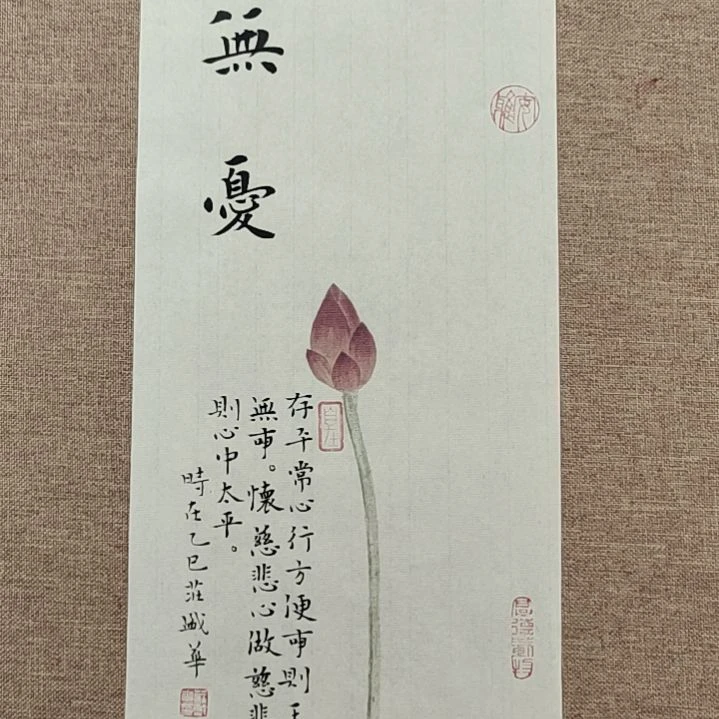 無憂
存平常心行方便事則
無事。懷慈悲心做慈悲
則心中太平。
時在乙巳莊盛華
自在